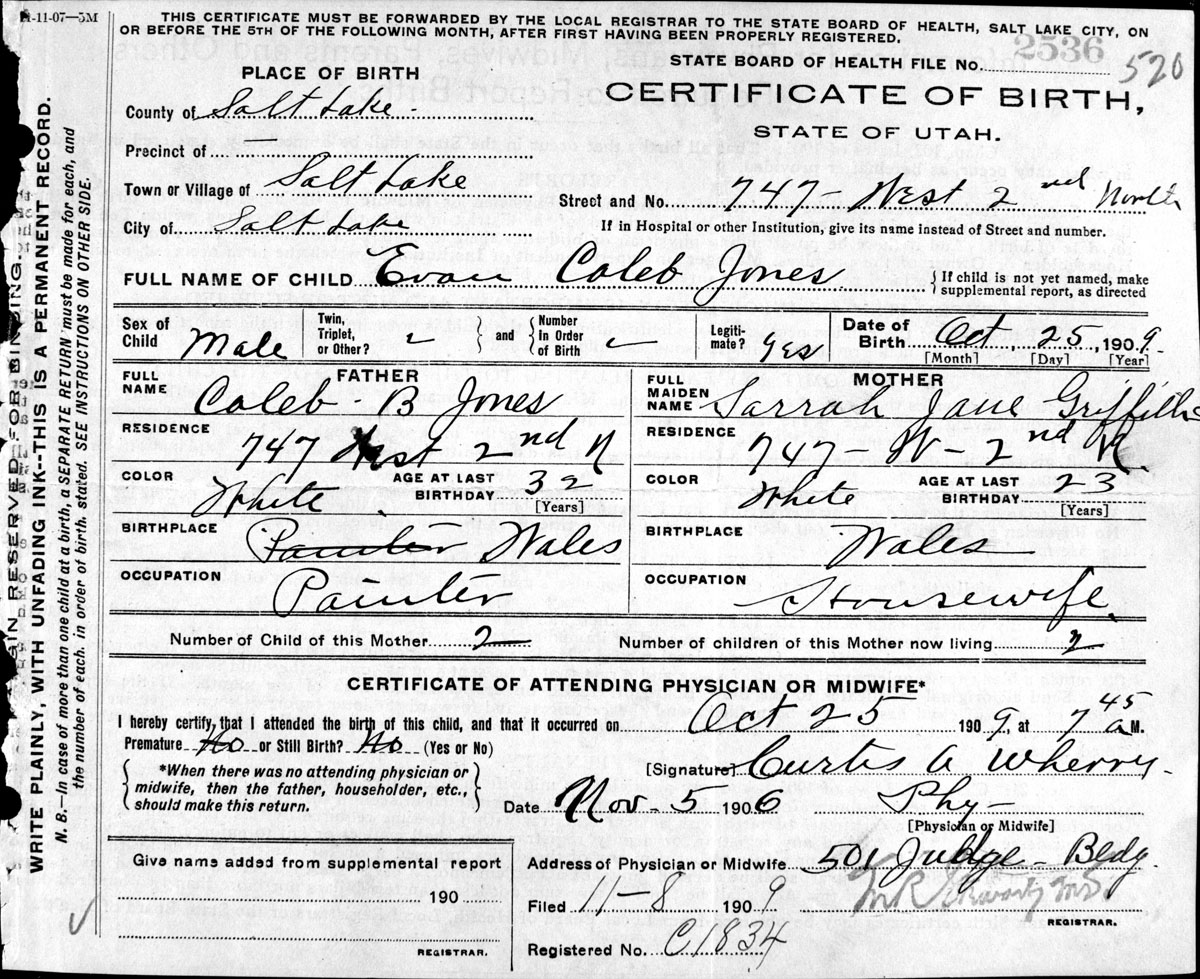 11-11-07--5M
THIS CERTIFICATE MUST BE FORWARDED BY THE LOCAL REGISTRAR TO THE STATE BOARD OF HEALTH, SALT LAKE CITY, ON
OR BEFORE THE 5TH OF THE FOLLOWING MONTH, AFTER FIRST HAVING BEEN PROPERLY REGISTERED.
STATE BOARD OF HEALTH FILE NO. 2536 520
PLACE OF BIRTH
CERTIFICATE OF BIRTH,
STATE OF UTAH.
County of Salt Lake
Precinct of
Town or Village of Salt Lake
Street and No. 747 - West 2nd North
City of Salt Lake
If in Hospital or other Institution, give its name instead of Street and number.
FULL NAME OF CHILD Evan Caleb Jones
If child is not yet named, make
supplemental report, as directed
Sex of Child Male
Twin, Triplet, or Other?
and Number In Order of Birth
Legiti-mate? yes
Date of Birth Oct 25, 1909
[Month] [Day] [Year]
FATHER
FULL NAME Caleb B Jones
RESIDENCE 747 West 2nd N
COLOR White
AGE AT LAST BIRTHDAY 32
[Years]
BIRTHPLACE Painter Wales
OCCUPATION Painter
MOTHER
FULL MAIDEN NAME Sarrah Jane Griffiths
RESIDENCE 747 - W - 2nd N.
COLOR White
AGE AT LAST BIRTHDAY 23
[Years]
BIRTHPLACE Wales
OCCUPATION Housewife
Number of Child of this Mother 2
Number of children of this Mother now living 2
CERTIFICATE OF ATTENDING PHYSICIAN OR MIDWIFE*
I hereby certify that I attended the birth of this child, and that it occurred on Oct 25 1909, at 7 45 a M.
Premature No or Still Birth? No (Yes or No)
*When there was no attending physician or
midwife, then the father, householder, etc.,
should make this return.
[Signature] Curtis A Wherry
Date Nov - 5 1906 Phy -
[Physician or Midwife]
Give name added from supplemental report
190
REGISTRAR.
Address of Physician or Midwife 501 Judge - Bldg.
Filed 11-8 1909
REGISTRAR.
Registered No. C1834
MARGIN RESERVED FOR BINDING.
WRITE PLAINLY, WITH UNFADING INK--THIS IS A PERMANENT RECORD.
N. B.--In case of more than one child at a birth, a SEPARATE RETURN must be made for each, and
the number of each, in order of birth, stated. SEE INSTRUCTIONS ON OTHER SIDE.